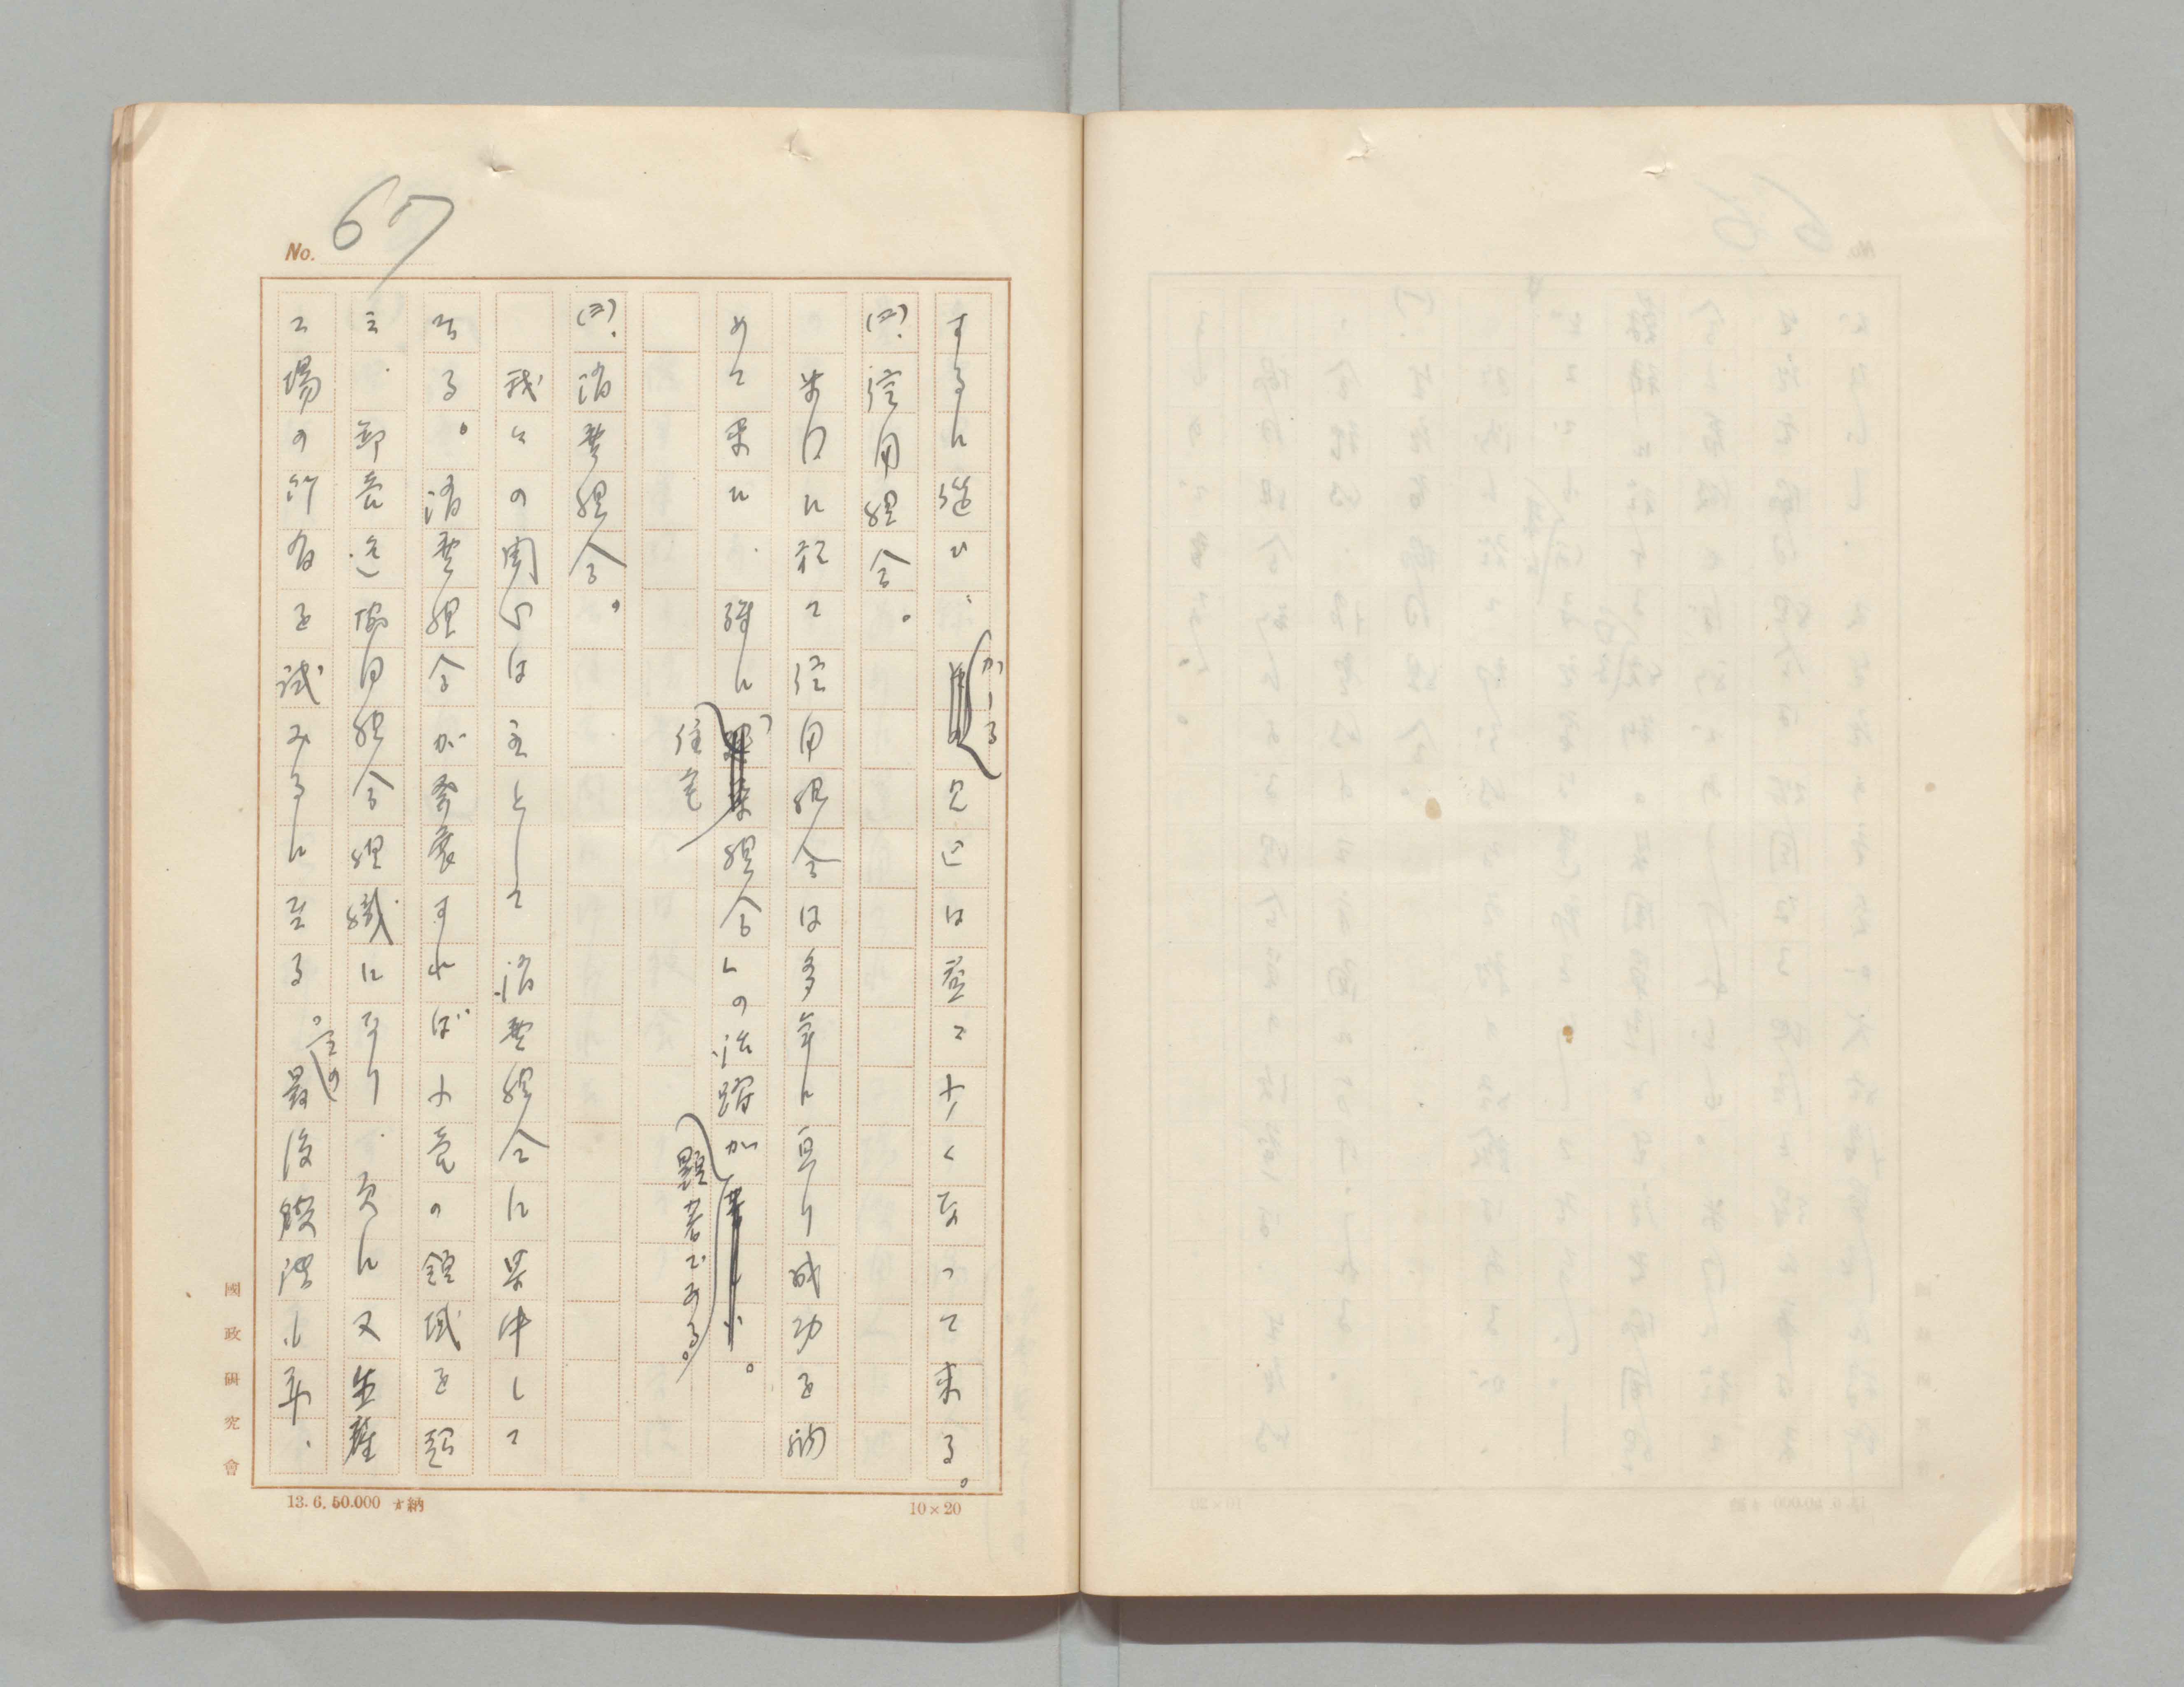 No. 67
するに従ひ、かゝる欠亡は並て少くなつて来る。
(二)、信用組合。
歩口に於て信用組合は多年に亘り成功を納
めて来た、殊に住宅組合しの活躍が顕著である。
(三)、消費組合。
我々の関心は主として消費組合に集中して
ゐる。消費組合が発展すれば小売の領域を超
え、卸売連協同組合組織になり、更に又生産
工場の所有を試みるに至る。この最後段階は、
國政研究會
13. 6. 50.000 納
10×20